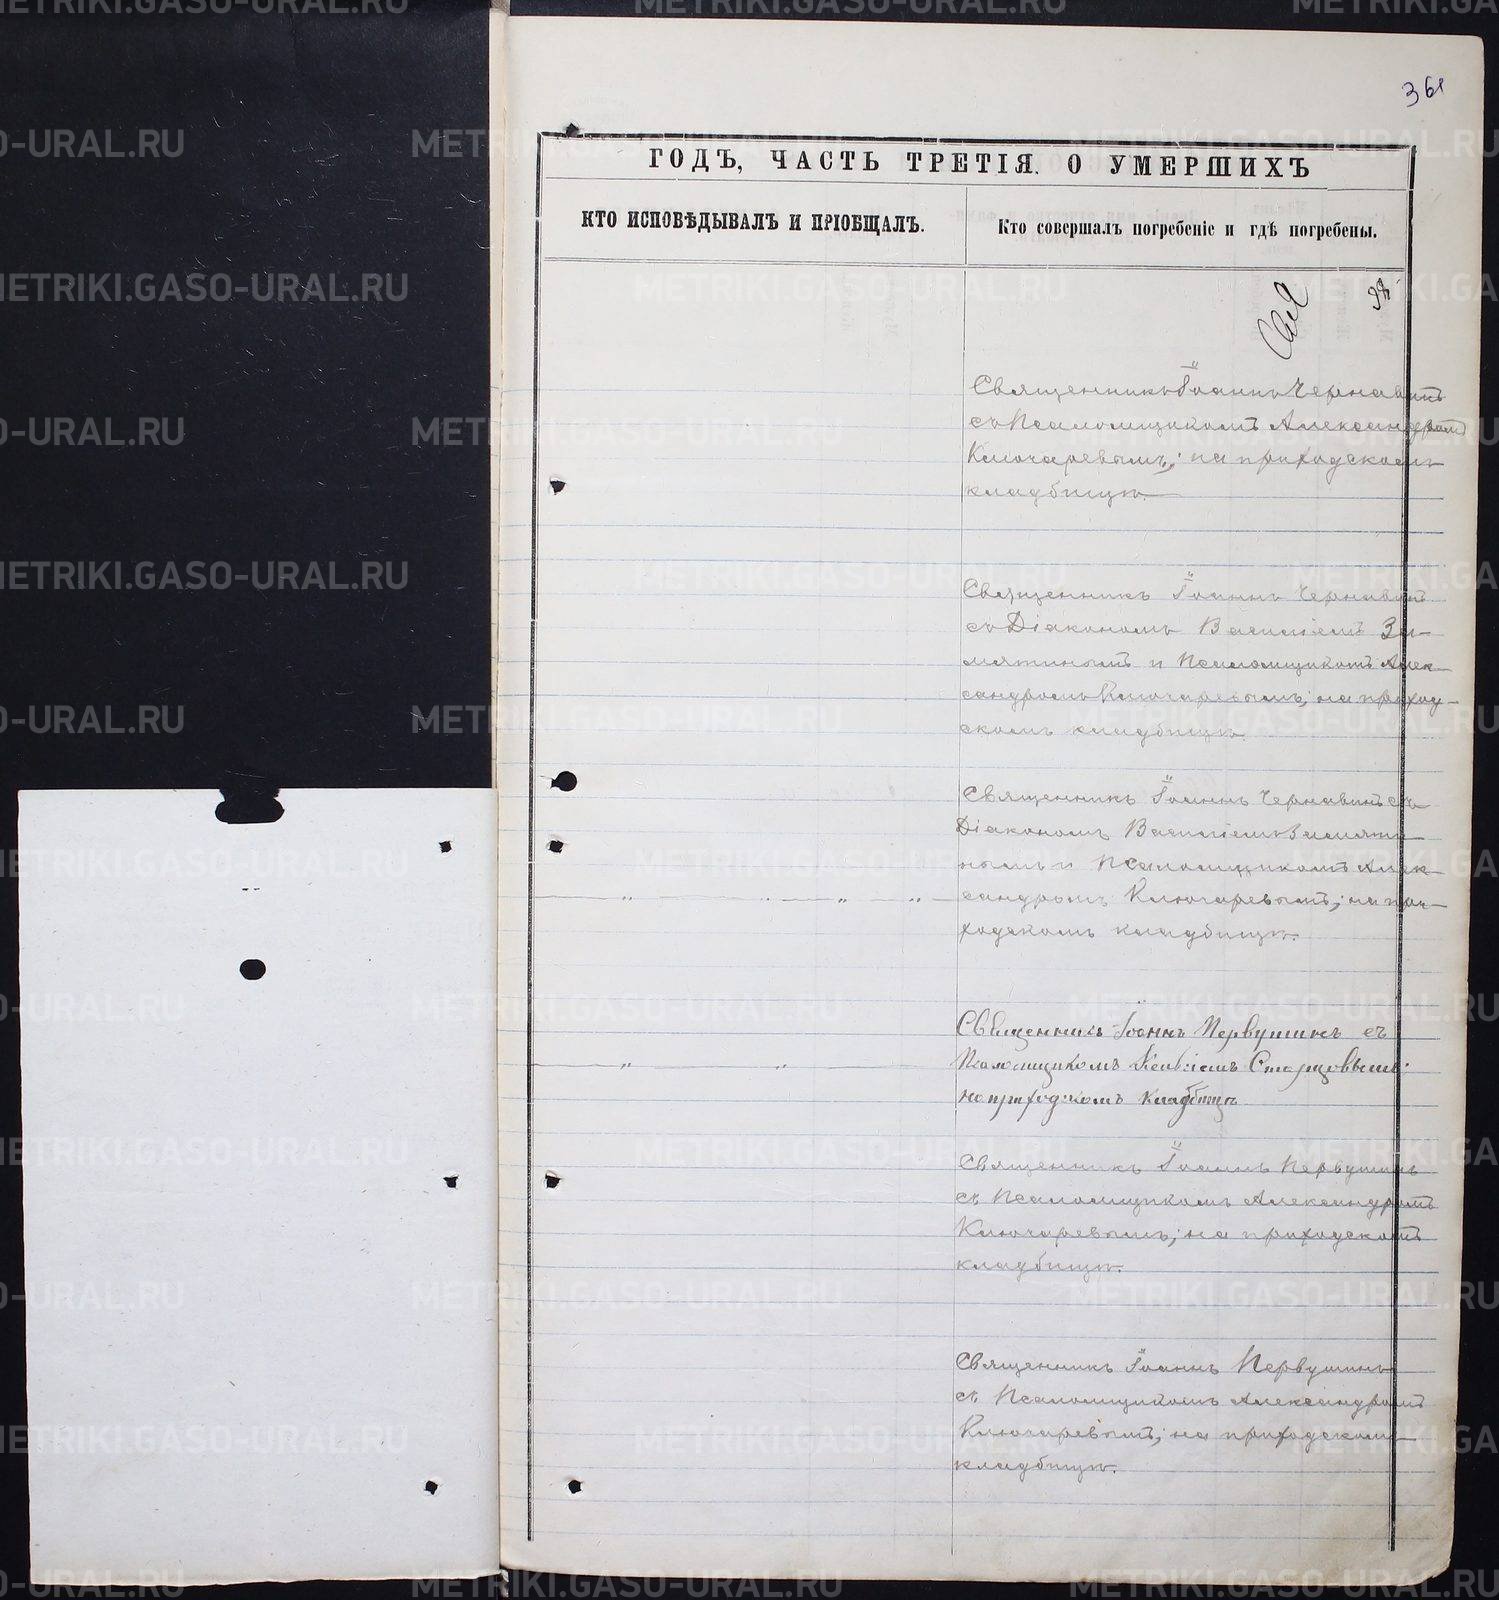 361
ГОДЪ, ЧАСТЬ ТРЕТІЯ. О УМЕРШИХЪ
КТО ИСПОВѢДЫВАЛЪ И ПРІОБЩАЛЪ.
Кто совершалъ погребеніе и гдѣ погребены.
Священникъ Іоаннъ Чернавинъ
съ Псаломщикомъ Александромъ
Ключаревымъ; на приходскомъ
кладбищѣ.
Священникъ Іоаннъ Чернавинъ
съ Діакономъ Василіемъ За-
мятинымъ и Псаломщикомъ Алек-
сандромъ Ключаревымъ; на приход-
скомъ кладбищѣ.
Священникъ Іоаннъ Чернавинъ съ
Діакономъ Василіемъ Замяти-
нымъ и Псаломщикомъ Алек-
сандромъ Ключаревымъ; на при-
ходскомъ кладбищѣ.
Священникъ Іоаннъ Первушинъ съ
Псаломщикомъ Старцовымъ:
на приходскомъ кладбищѣ
Священникъ Іоаннъ Первушинъ
съ Псаломщикомъ Александромъ
Ключаревымъ; на приходскомъ
кладбищѣ.
Священникъ Іоаннъ Первушинъ
съ Псаломщикомъ Александромъ
Ключаревымъ; на приходскомъ
кладбищѣ.
METRIKI.GASO-URAL.RU